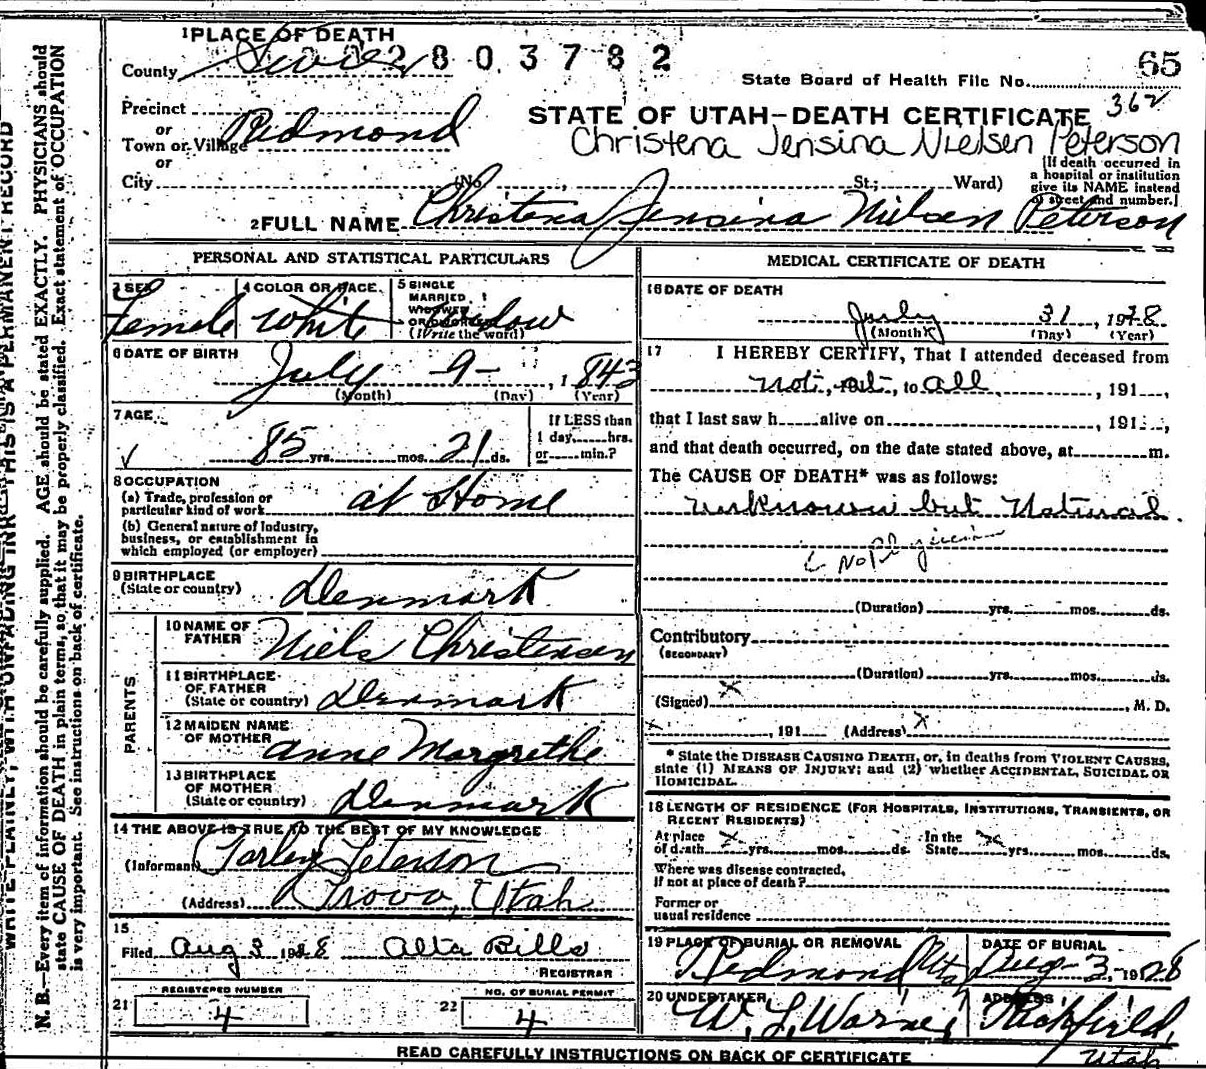 1 PLACE OF DEATH
County Sevier
2803782
65
State Board of Health File No.
Precinct
or
Town or Village Redmond
or
City (No. , St.; Ward)
STATE OF UTAH—DEATH CERTIFICATE 362
Christena Jensina Nielsen Peterson
[If death occurred in
a hospital or institution
give its NAME instead
of street and number.]
2 FULL NAME Christena Jensina Nielsen Peterson
PERSONAL AND STATISTICAL PARTICULARS
3 SEX Female
4 COLOR OR RACE White
5 SINGLE
MARRIED,
WIDOWED
OR DIVORCED Widow
(Write the word)
6 DATE OF BIRTH
July 9- , 1843
(Month) (Day) (Year)
7 AGE
85 yrs. mos. 21 ds.
If LESS than
1 day, hrs.
or min.?
8 OCCUPATION
(a) Trade, profession or
particular kind of work at Home
(b) General nature of Industry,
business, or establishment in
which employed (or employer)
9 BIRTHPLACE
(State or country) Denmark
PARENTS
10 NAME OF
FATHER Niels Christensen
11 BIRTHPLACE
OF FATHER
(State or country) Denmark
12 MAIDEN NAME
OF MOTHER Anne Margrethe
13 BIRTHPLACE
OF MOTHER
(State or country) Denmark
14 THE ABOVE IS TRUE TO THE BEST OF MY KNOWLEDGE
(Informant) Peterson
(Address) Provo, Utah
15
Filed Aug 3 1928 Alta Bills
REGISTRAR
21 REGISTERED NUMBER
4
22 NO. OF BURIAL PERMIT
4
MEDICAL CERTIFICATE OF DEATH
16 DATE OF DEATH
July 31 , 1928
(Month) (Day) (Year)
17 I HEREBY CERTIFY, That I attended deceased from
not, at, to all , 191 ,
that I last saw h alive on , 191 ,
and that death occurred, on the date stated above, at m.
The CAUSE OF DEATH* was as follows:
unknown but Natural
No Physician
(Duration) yrs. mos. ds.
Contributory
(SECONDARY)
(Duration) yrs. mos. ds.
(Signed) X , M. D.
x , 191 (Address) X
* State the DISEASE CAUSING DEATH, or, in deaths from VIOLENT CAUSES,
state (1) MEANS OF INJURY; and (2) whether ACCIDENTAL, SUICIDAL OR
HOMICIDAL.
18 LENGTH OF RESIDENCE (FOR HOSPITALS, INSTITUTIONS, TRANSIENTS, OR
RECENT RESIDENTS)
At place of death x yrs. mos. ds. In the State x yrs. mos. ds.
Where was disease contracted,
If not at place of death?
Former or
usual residence
19 PLACE OF BURIAL OR REMOVAL
Redmond Utah
DATE OF BURIAL
Aug- 3, 1928
20 UNDERTAKER
W. L. Warner
ADDRESS
Richfield,
Utah
READ CAREFULLY INSTRUCTIONS ON BACK OF CERTIFICATE
WRITE PLAINLY, WITH UNFADING INK—THIS IS A PERMANENT RECORD
N. B.—Every item of information should be carefully supplied. AGE should be stated EXACTLY. PHYSICIANS should
state CAUSE OF DEATH in plain terms, so that it may be properly classified. Exact statement of OCCUPATION
is very important. See instructions on back of certificate.